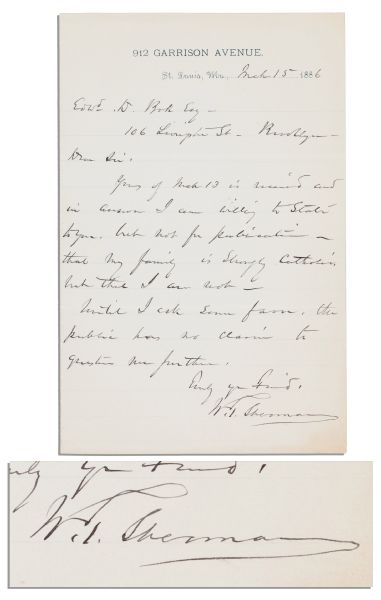 912 GARRISON AVENUE.
St. Louis, Mo., Mch 15 1886
Edwd. W. Bok Esq -
106 St - Brooklyn -
Dear Sir.
Yours of Mch 13 is received and
in answer I am willing to State
to you, but not for publication -
that my family is Strongly Catholic
but that I am not -
Until I ask some favor, the
public has no claim to
question me further.
Truly yr friend,
W. T. Sherman
yr friend,
W. T. Sherman